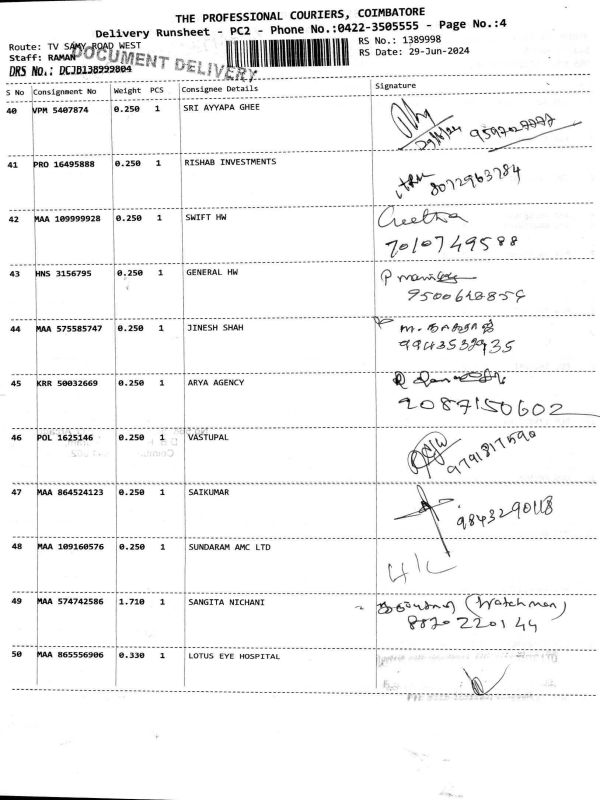 THE PROFESSIONAL COURIERS, COIMBATORE
Delivery Runsheet - PC2 - Phone No.:0422-3505555 - Page No.:4
Route: TV SAMY ROAD WEST
RS No.: 1389998
Staff: RAMAN
DOCUMENT DELIVERY
RS Date: 29-Jun-2024
DRS No.: DCJB138999804
S No Consignment No Weight PCS Consignee Details Signature
40 VPM 5407874 0.250 1 SRI AYYAPA GHEE
29/6/24
41 PRO 16495888 0.250 1 RISHAB INVESTMENTS
8072963784
42 MAA 109999928 0.250 1 SWIFT HW Geetha
7010749588
43 HNS 3156795 0.250 1 GENERAL HW
44 MAA 575585747 0.250 1 JINESH SHAH
45 KRR 50032669 0.250 1 ARYA AGENCY
9087150602
46 POL 1625146 0.250 1 VASTUPAL
9791817590
47 MAA 864524123 0.250 1 SAIKUMAR
9843290118
48 MAA 109160576 0.250 1 SUNDARAM AMC LTD
49 MAA 574742586 1.710 1 SANGITA NICHANI (Watchman)
8870220144
50 MAA 865556906 0.330 1 LOTUS EYE HOSPITAL